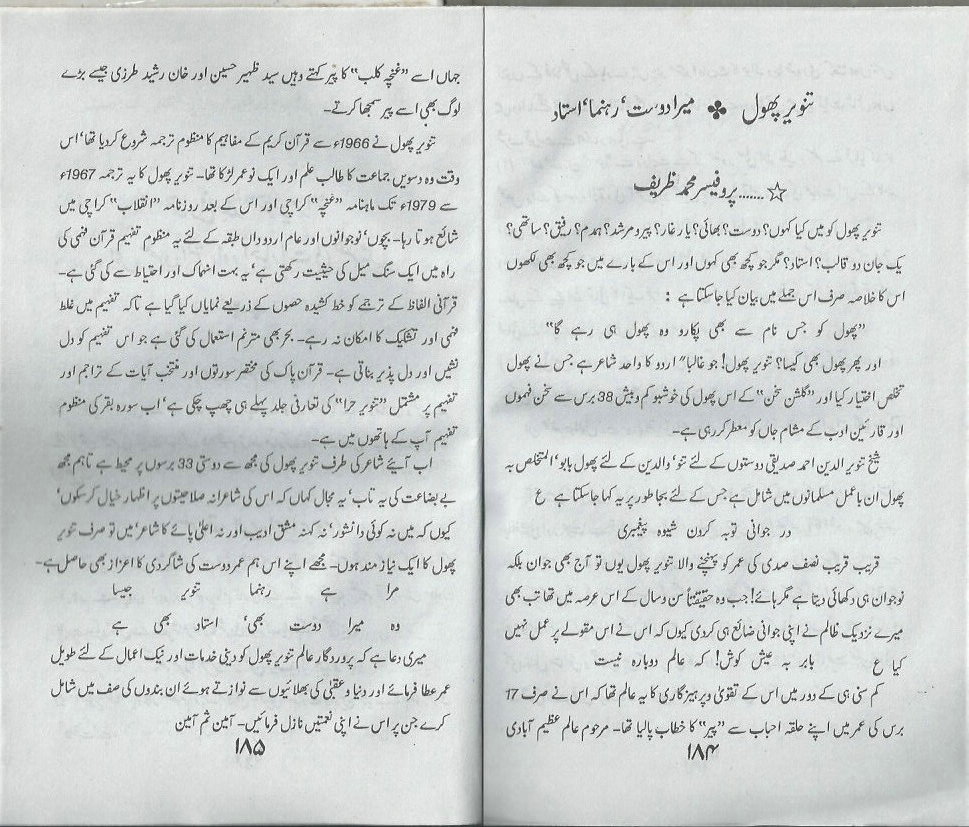 تنویر پھول ♣ میرا دوست، رہنما، استاد
☆....... پروفیسر محمد ظریف
تنویر پھول کو میں کیا کہوں؟ دوست؟ بھائی؟ یار غار؟ پیر و مرشد؟ ہمدم؟ رفیق؟ ساتھی؟
یک جان دو قالب؟ استاد؟ مگر جو کچھ بھی کہوں اور اس کے بارے میں جو کچھ بھی لکھوں
اس کا خلاصہ صرف اس جملے میں بیان کیا جاسکتا ہے :
"پھول کو جس نام سے بھی پکارو وہ پھول ہی رہے گا"
اور پھر پھول بھی کیسا؟ تنویر پھول! جو غالباً" اردو کا واحد شاعر ہے جس نے پھول
تخلص اختیار کیا اور "گلشن سخن" کے اس پھول کی خوشبو کم و بیش 38 برس سے سخن فہموں
اور قارئین ادب کے مشام جاں کو معطر کر رہی ہے۔
شیخ تنویر الدین احمد صدیقی دوستوں کے لئے تنو، والدین کے لئے پھول بابو، المتخلص بہ
پھول ان باعمل مسلمانوں میں شامل ہے جس کے لئے بجا طور پر یہ کہا جاسکتا ہے ع
در جوانی توبہ کردن شیوہ پیغمبری
قریب قریب نصف صدی کی عمر کو پہنچنے والا تنویر پھول یوں تو آج بھی جوان بلکہ
نوجوان ہی دکھائی دیتا ہے مگر ہائے! جب وہ حقیقتاً سن و سال کے اس عرصہ میں تھا تب بھی
میرے نزدیک ظالم نے اپنی جوانی ضائع ہی کردی کیوں کہ اس نے اس مقولے پر عمل نہیں
کیا ع بابر بہ عیش کوش! کہ عالم دوبارہ نیست
کم سنی ہی کے دور میں اس کے تقویٰ و پرہیزگاری کا یہ عالم تھا کہ اس نے صرف 17
برس کی عمر میں اپنے حلقہ احباب سے "پیر" کا خطاب پالیا تھا۔ مرحوم عالم عظیم آبادی
۱۸۴
جہاں اسے "غنچہ کلب" کا پیر کہتے وہیں سید ظہیر حسین اور خان رشید طرزی جیسے بڑے
لوگ بھی اسے پیر سمجھا کرتے۔
تنویر پھول نے 1966ء سے قرآن کریم کے مفاہیم کا منظوم ترجمہ شروع کردیا تھا، اس
وقت وہ دسویں جماعت کا طالب علم اور ایک نوعمر لڑکا تھا۔ تنویر پھول کا یہ ترجمہ 1967ء
سے 1979ء تک ماہنامہ "غنچہ" کراچی اور اس کے بعد روزنامہ "انقلاب" کراچی میں
شائع ہوتا رہا۔ بچوں، نوجوانوں اور عام اردو داں طبقہ کے لئے یہ منظوم تفہیم قرآن فہمی کی
راہ میں ایک سنگ میل کی حیثیت رکھتی ہے، یہ بہت انہماک اور احتیاط سے کی گئی ہے۔
قرآنی الفاظ کے ترجمے کو خط کشیدہ حصوں کے ذریعے نمایاں کیا گیا ہے تاکہ تفہیم میں غلط
فہمی اور تشکیک کا امکان نہ رہے۔ بحر بھی مترنم استعمال کی گئی ہے جو اس تفہیم کو دل
نشیں اور دل پذیر بناتی ہے۔ قرآن پاک کی مختصر سورتوں اور منتخب آیات کے تراجم اور
تفہیم پر مشتمل "تنویر حرا" کی تعارفی جلد پہلے ہی چھپ چکی ہے، اب سورہ بقر کی منظوم
تفہیم آپ کے ہاتھوں میں ہے۔
اب آیئے شاعر کی طرف تنویر پھول کی مجھ سے دوستی 33 برسوں پر محیط ہے تاہم مجھ
بے بضاعت کی یہ تاب، یہ مجال کہاں کہ اس کی شاعرانہ صلاحیتوں پر اظہار خیال کرسکوں،
کیوں کہ میں نہ کوئی دانشور، نہ کہنہ مشق ادیب اور نہ اعلیٰ پائے کا شاعر، میں تو صرف تنویر
پھول کا ایک نیاز مند ہوں۔ مجھے اپنے اس ہم عمر دوست کی شاگردی کا اعزاز بھی حاصل ہے۔
مرا ہے رہنما تنویر جیسا
وہ میرا دوست بھی، استاد بھی ہے
میری دعا ہے کہ پروردگار عالم تنویر پھول کو دینی خدمات اور نیک اعمال کے لئے طویل
عمر عطا فرمائے اور دنیا و عقبیٰ کی بھلائیوں سے نوازتے ہوئے ان بندوں کی صف میں شامل
کرے جن پر اس نے اپنی نعمتیں نازل فرمائیں۔ آمین ثم آمین
۱۸۵